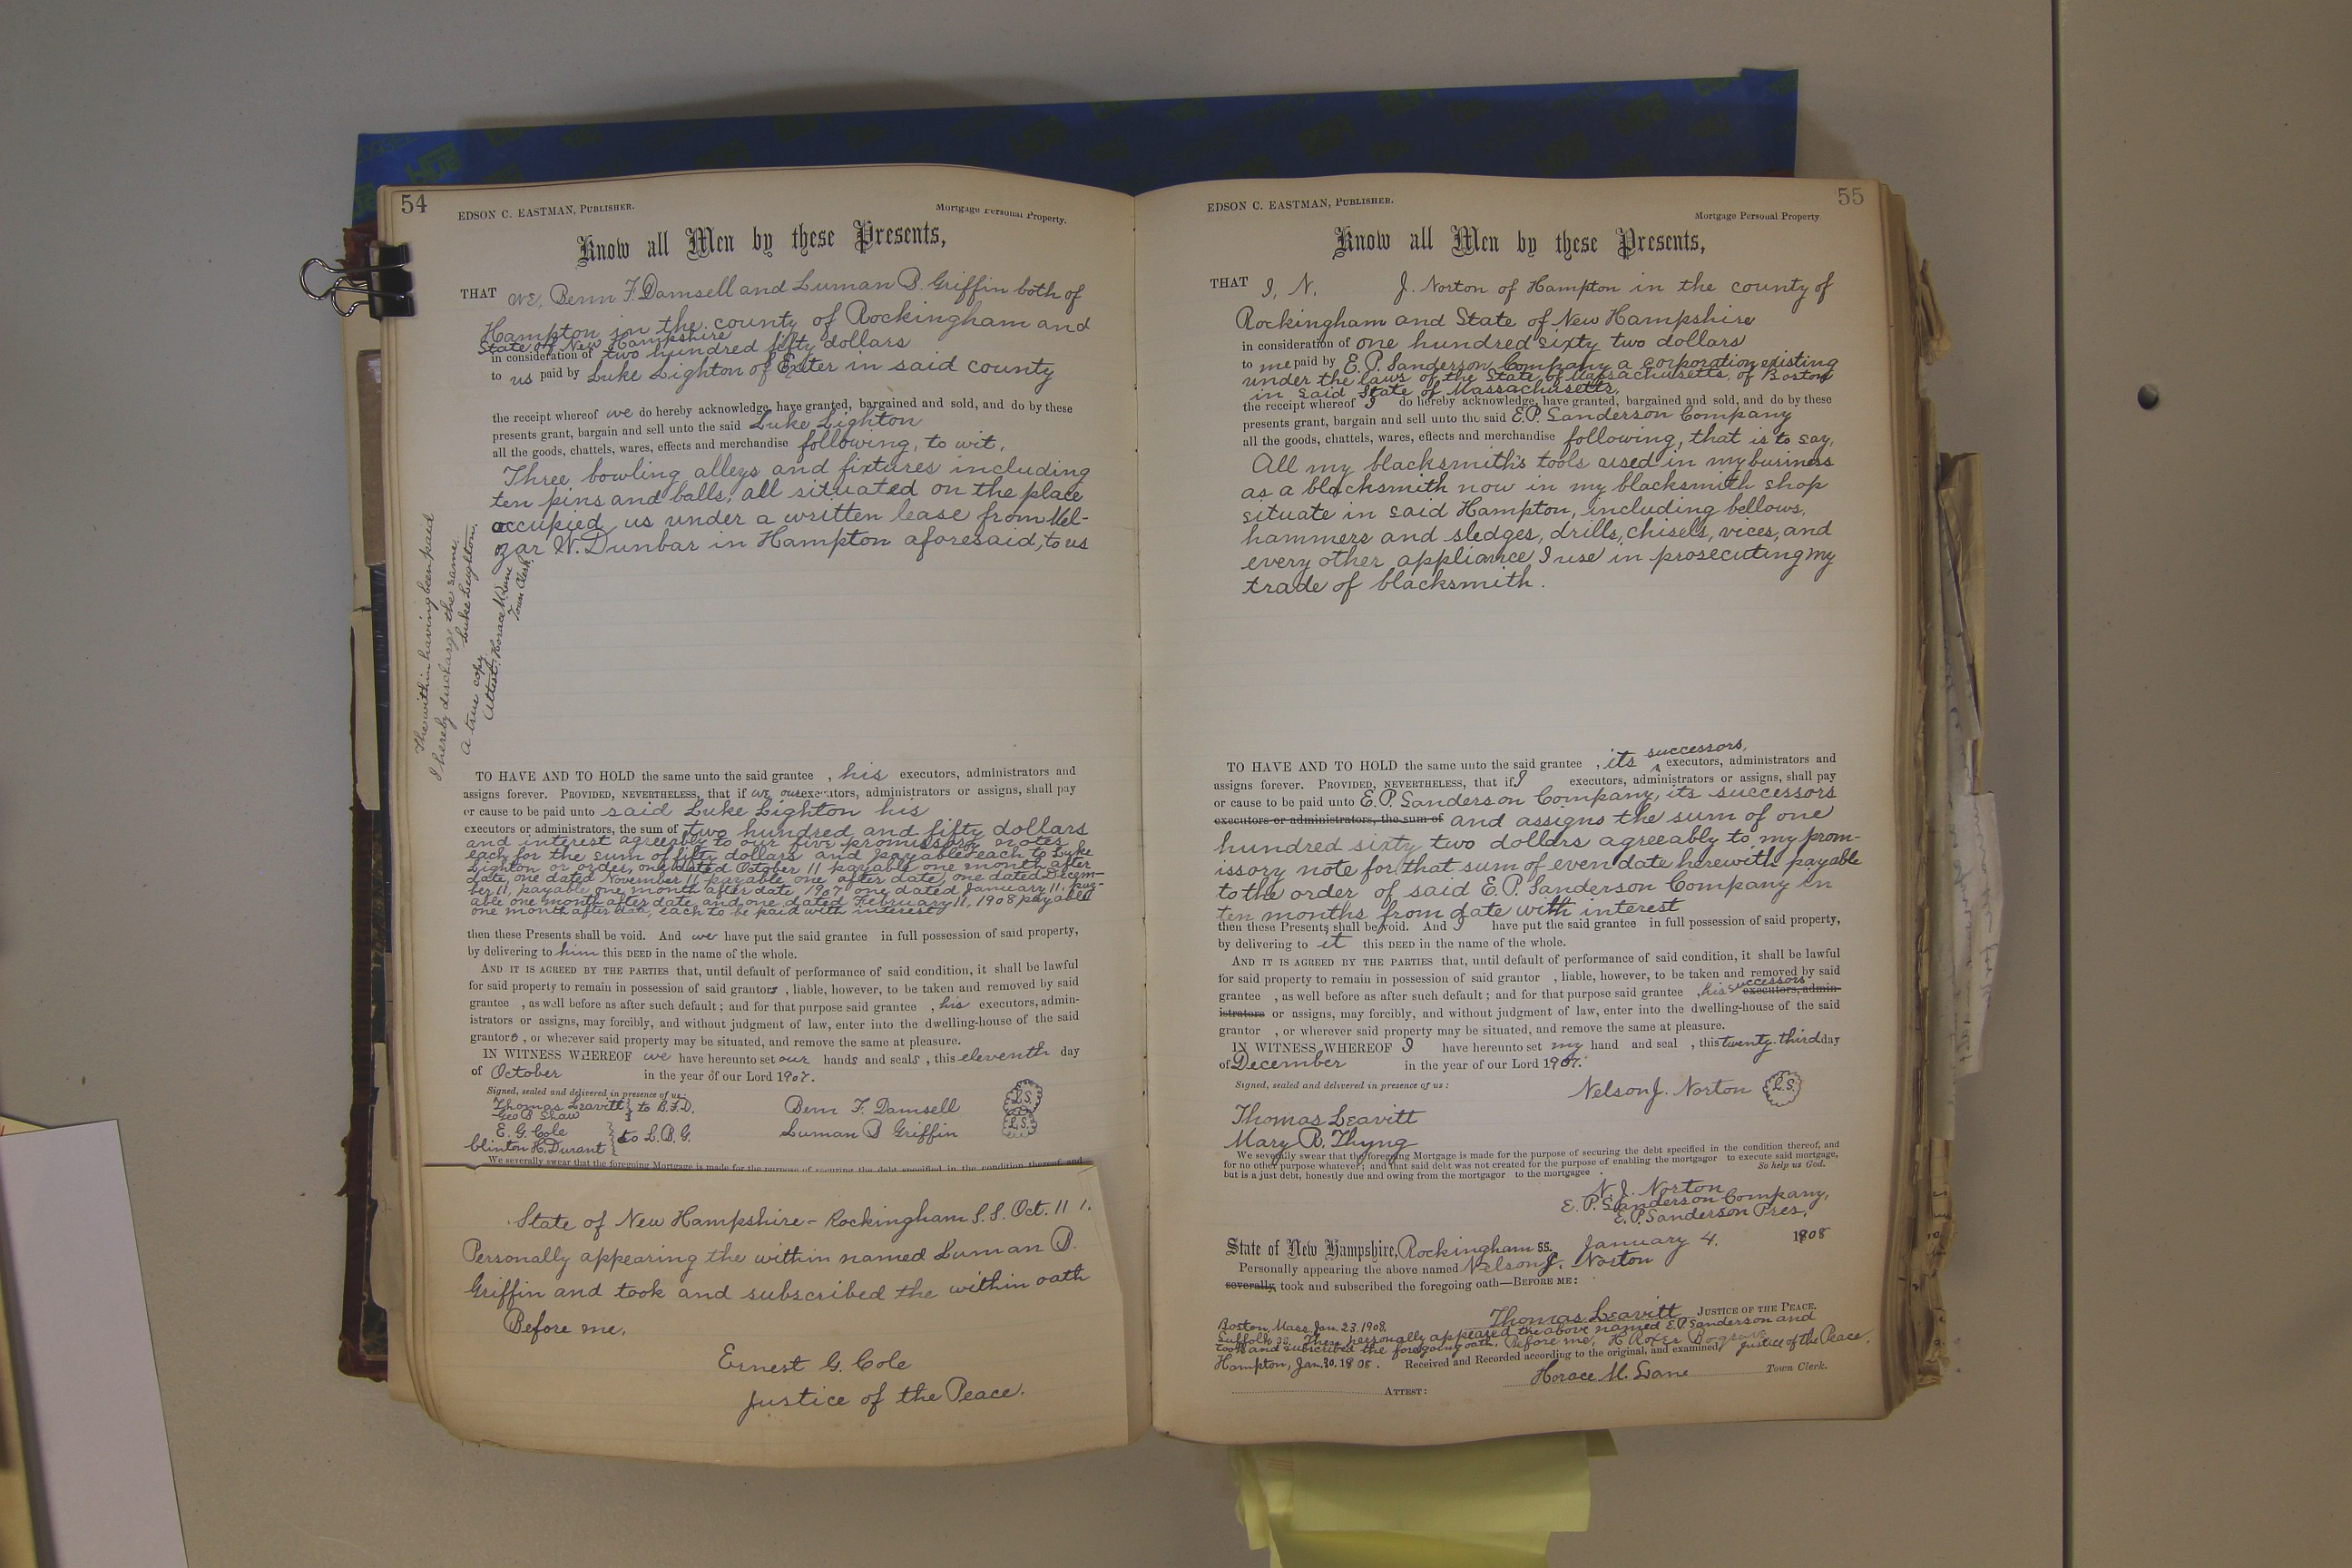 54
EDSON C. EASTMAN, PUBLISHER.
Mortgage Personal Property.
Know all Men by these Presents,
THAT We, Benn F. Damsell and Luman B. Griffin both of
Hampton in the county of Rockingham and
State of New Hampshire
in consideration of two hundred fifty dollars
to us paid by Luke Lighton of Exeter in said county
the receipt whereof we do hereby acknowledge, have granted, bargained and sold, and do by these
presents grant, bargain and sell unto the said Luke Lighton
all the goods, chattels, wares, effects and merchandise following, to wit,
Three bowling alleys and fixtures including
ten pins and balls, all situated on the place
occupied us under a written lease from Mel-
zar W. Dunbar in Hampton aforesaid, to us
The within having been paid
I hereby discharge the same.
Luke Leighton.
A true copy
Attest: Horace M. Lane
Town Clerk.
TO HAVE AND TO HOLD the same unto the said grantee , his executors, administrators and
assigns forever. PROVIDED, NEVERTHELESS, that if we, our executors, administrators or assigns, shall pay
or cause to be paid unto said Luke Lighton his
executors or administrators, the sum of two hundred and fifty dollars
and interest agreeably to our five promissory notes
each for the sum of fifty dollars and payable each to Luke
Lighton or order, one dated October 11 payable one month after
date, one dated November 11 payable one after date, one dated Decem-
ber 11, payable one month after date 1907 one dated January 11, pay-
able one month after date and one dated February 11, 1908 payable
one month after date, each to be paid with interest
then these Presents shall be void. And we have put the said grantee in full possession of said property,
by delivering to him this DEED in the name of the whole.
AND IT IS AGREED BY THE PARTIES that, until default of performance of said condition, it shall be lawful
for said property to remain in possession of said grantors , liable, however, to be taken and removed by said
grantee , as well before as after such default; and for that purpose said grantee , his executors, admin-
istrators or assigns, may forcibly, and without judgment of law, enter into the dwelling-house of the said
grantors , or wherever said property may be situated, and remove the same at pleasure.
IN WITNESS WHEREOF we have hereunto set our hands and seals , this eleventh day
of October in the year of our Lord 1907.
Signed, sealed and delivered in presence of us:
Thomas Leavitt } to B.F.D. Benn F. Damsell L.S.
Geo B Shaw
E. G. Cole } to L.B.G. Luman B Griffin L.S.
Clinton H. Durant
We severally swear that the foregoing Mortgage is made for the purpose of securing the debt specified in the condition thereof, and
State of New Hampshire - Rockingham S.S. Oct. 11 1.
Personally appearing the within named Luman B.
Griffin and took and subscribed the within oath
Before me,
Ernest G. Cole
Justice of the Peace.
55
EDSON C. EASTMAN, PUBLISHER.
Mortgage Personal Property
Know all Men by these Presents,
THAT I, N. J. Norton of Hampton in the county of
Rockingham and State of New Hampshire
in consideration of one hundred sixty two dollars
to me paid by E. P. Sanderson Company a corporation existing
under the laws of the State of Massachusetts, of Boston
in said State of Massachusetts,
the receipt whereof I do hereby acknowledge, have granted, bargained and sold, and do by these
presents grant, bargain and sell unto the said E.P. Sanderson Company
all the goods, chattels, wares, effects and merchandise following, that is to say,
All my blacksmith's tools used in my business
as a blacksmith now in my blacksmith shop
situate in said Hampton, including bellows,
hammers and sledges, drills, chisels, vices, and
every other appliance I use in prosecuting my
trade of blacksmith.
TO HAVE AND TO HOLD the same unto the said grantee , its successors, executors, administrators and
assigns forever. PROVIDED, NEVERTHELESS, that if I executors, administrators or assigns, shall pay
or cause to be paid unto E. P. Sanderson Company, its successors
executors or administrators, the sum of and assigns the sum of one
hundred sixty two dollars agreeably to my prom-
issory note for that sum of even date herewith payable
to the order of said E. P. Sanderson Company in
ten months from date with interest
then these Presents shall be void. And I have put the said grantee in full possession of said property,
by delivering to it this DEED in the name of the whole.
AND IT IS AGREED BY THE PARTIES that, until default of performance of said condition, it shall be lawful
for said property to remain in possession of said grantor , liable, however, to be taken and removed by said
grantee , as well before as after such default; and for that purpose said grantee , his successors executors, admin-
istrators or assigns, may forcibly, and without judgment of law, enter into the dwelling-house of the said
grantor , or wherever said property may be situated, and remove the same at pleasure.
IN WITNESS WHEREOF I have hereunto set my hand and seal , this twenty-third day
of December in the year of our Lord 1907.
Signed, sealed and delivered in presence of us:
Nelson J. Norton L.S.
Thomas Leavitt
Mary R. Thyng
We severally swear that the foregoing Mortgage is made for the purpose of securing the debt specified in the condition thereof, and
for no other purpose whatever; and that said debt was not created for the purpose of enabling the mortgagor to execute said mortgage,
but is a just debt, honestly due and owing from the mortgagor to the mortgagee . So help us God.
N. J. Norton
E. P. Sanderson Company,
E. P. Sanderson Pres.
State of New Hampshire, Rockingham SS. January 4. 1908
Personally appearing the above named Nelson J. Norton
severally took and subscribed the foregoing oath—BEFORE ME:
Thomas Leavitt JUSTICE OF THE PEACE.
Boston, Mass. Jan. 23 1908.
Suffolk ss. Then personally appeared the above named E.P. Sanderson and
took and subscribed the foregoing oath. Before me, Justice of the Peace.
Hampton, Jan. 30, 1908. Received and Recorded according to the original, and examined,
ATTEST: Horace M. Lane Town Clerk.